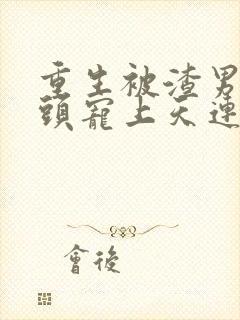 重生被渣男
頭寵上天連
會後